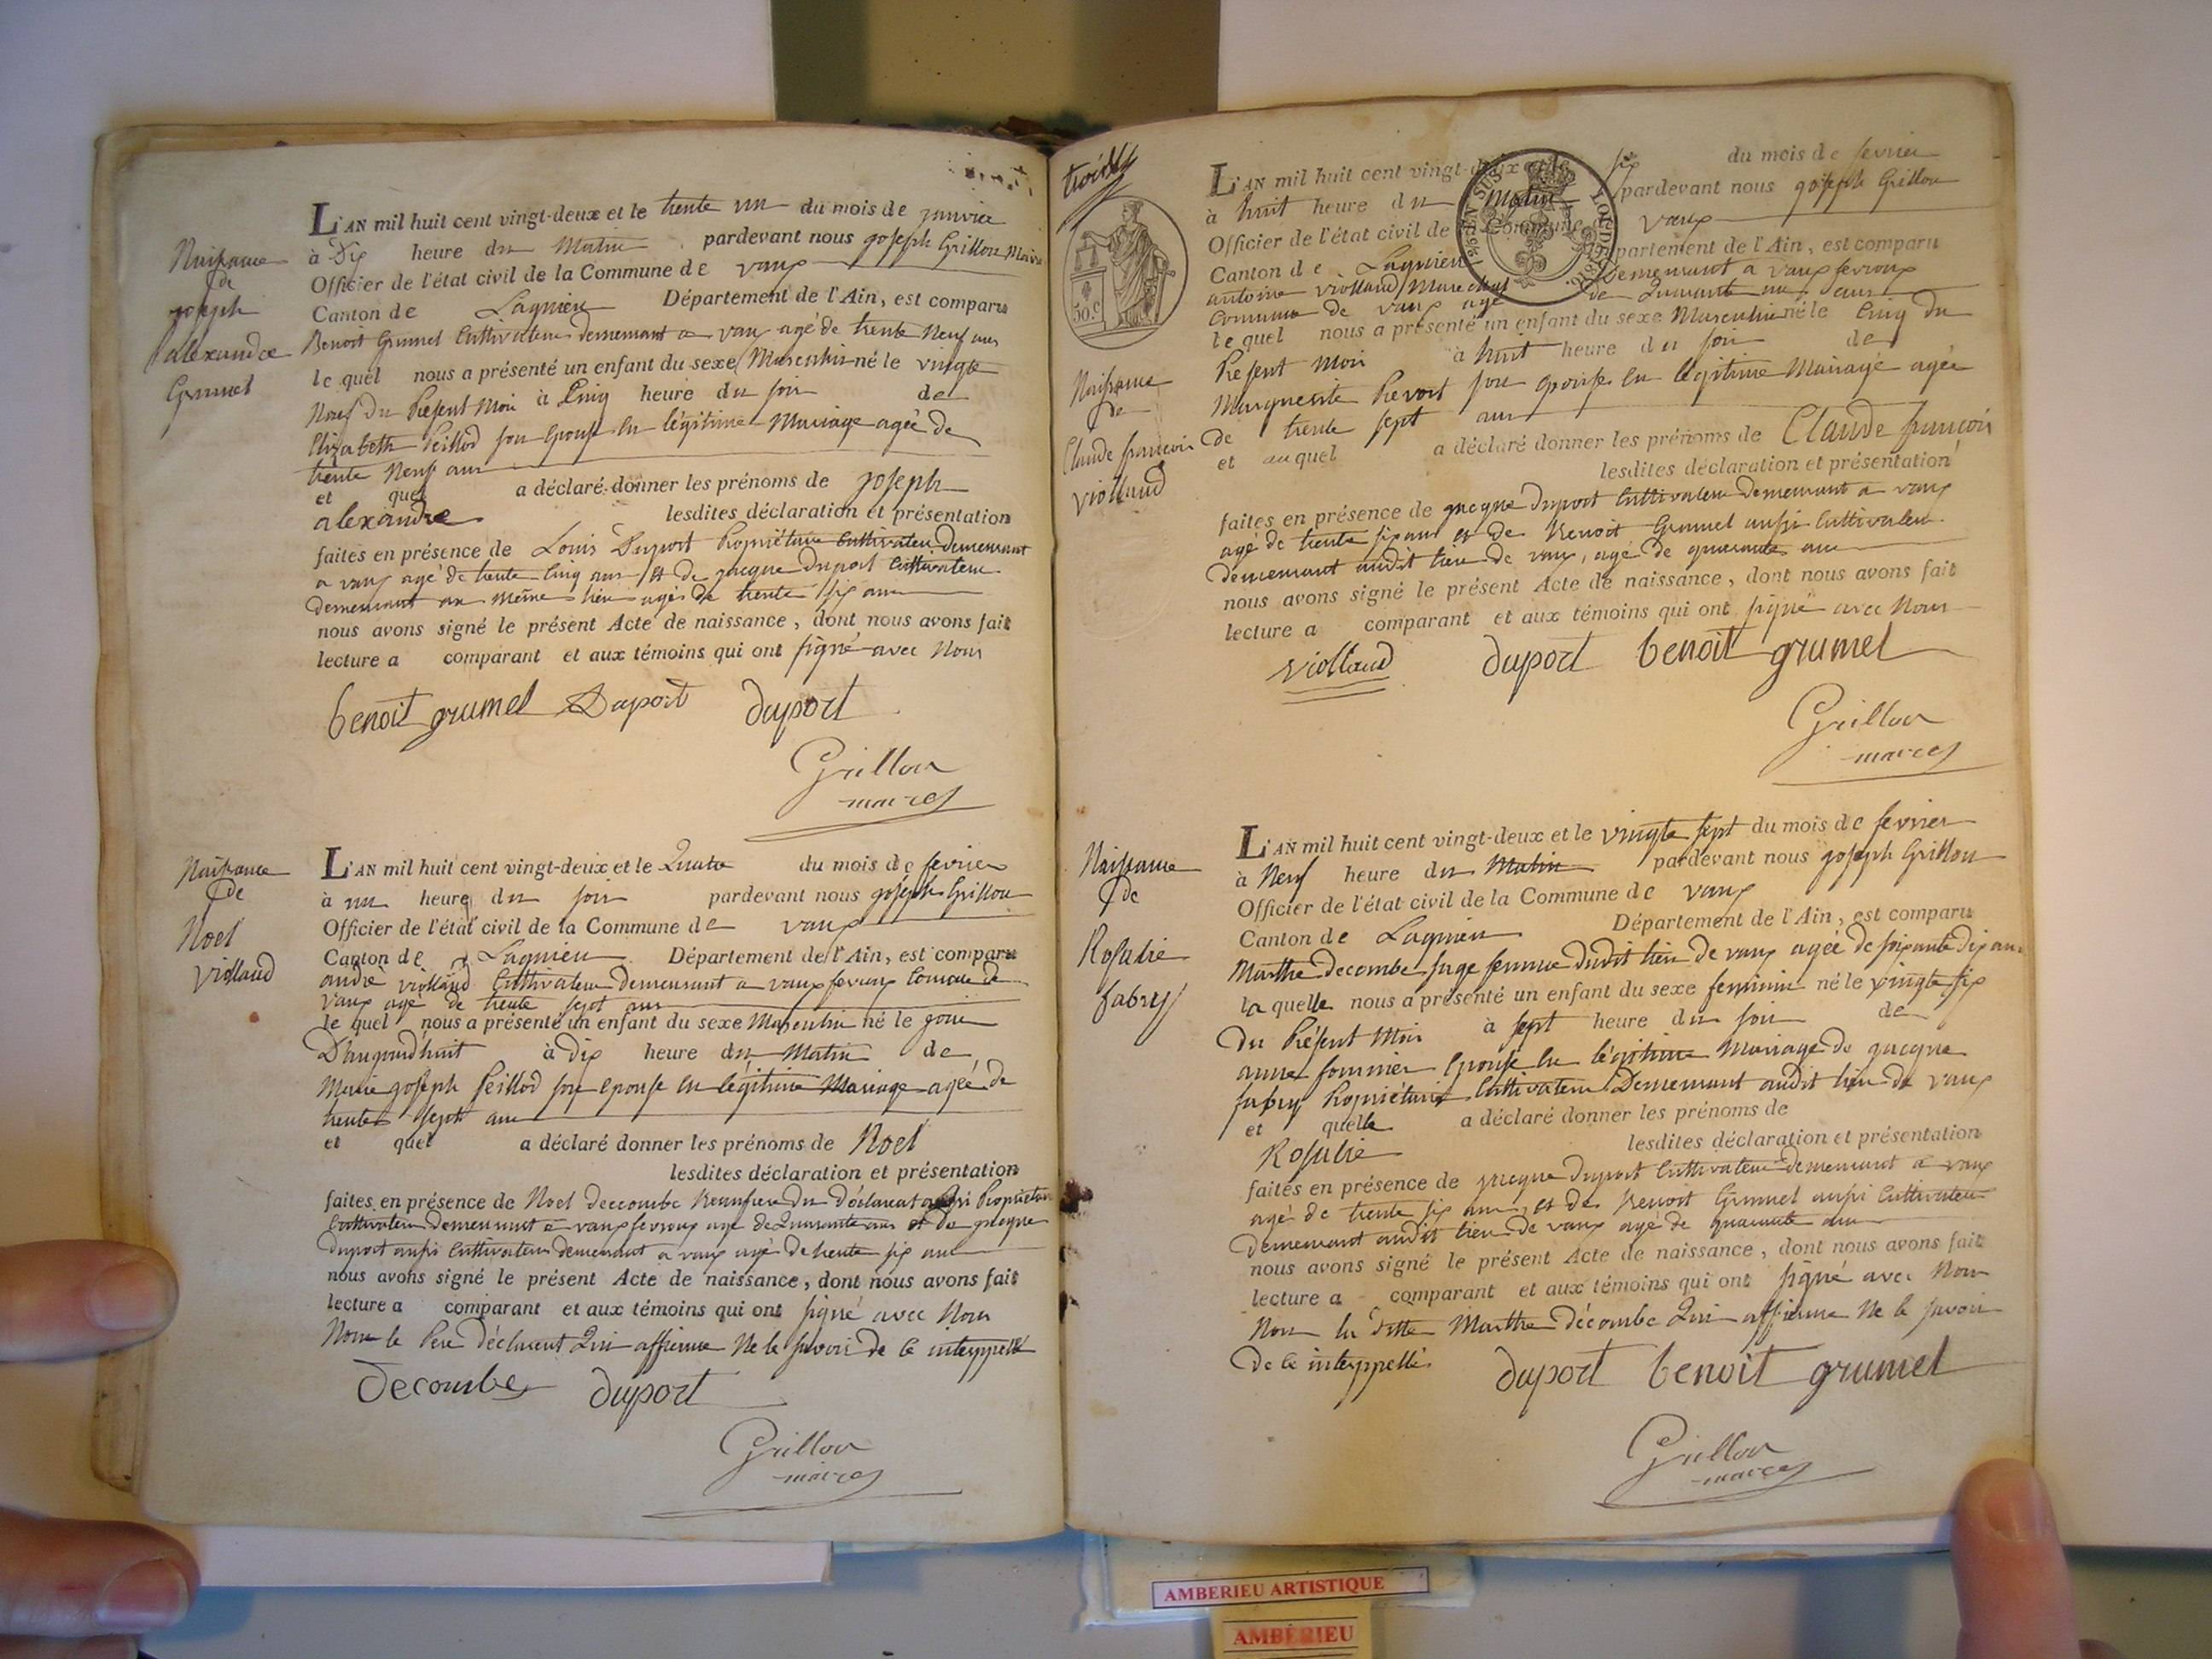 Naissance
de
joseph
alexandre
Grumel
L'AN mil huit cent vingt-deux et le trente un du mois de janvier
à Dix heure du Matin pardevant nous joseph Grillon Maire
Officier de l'état civil de la Commune de vaux
Canton de Lagnieu Département de l'Ain, est comparu
Benoit Grumel Cultivateur demeurant a vaux agé de trente Neuf ans
le quel nous a présenté un enfant du sexe Masculin né le vingte
Neuf du Présent Moi à Cinq heure du soir de
Elizabeth Peillod son Epouse en légitime Mariage agée de
trente Neuf ans
et quel a déclaré donner les prénoms de joseph
alexandre lesdites déclaration et présentation
faites en présence de Louis Duport Propriétaire Cultivateur Demeurant
a vaux agé de trente Cinq ans et de jacque duport Cultivateur
demeurant au même lieu agé de trente six ans
nous avons signé le présent Acte de naissance, dont nous avons fait
lecture a comparant et aux témoins qui ont signé avec Nous
benoit grumel Duport duport
Grillon
maire
Naissance
de
Noel
violland
L'AN mil huit cent vingt-deux et le Quatre du mois de fevrier
à un heure du soir pardevant nous joseph Grillon
Officier de l'état civil de la Commune de vaux
Canton de Lagnieu Département de l'Ain, est comparu
andré violland Cultivateur demeurant a vaux fevroux Comune de
vaux agé de trente sept ans
le quel nous a présenté un enfant du sexe Masculin né le jour
D'aujourd'huit à Dix heure du Matin de
Marie joseph Peillod son epouse en légitime Mariage agée de
trente sept ans
et quel a déclaré donner les prénoms de Noel
lesdites déclaration et présentation
faites en présence de Noel Decombe Beaufrere du déclarant aussi Propriétaire
Cultivateur demeurant a vaux fevroux agé de Quarante ans et de jacque
duport aussi Cultivateur demeurant a vaux agé de trente six ans
nous avons signé le présent Acte de naissance, dont nous avons fait
lecture a comparant et aux témoins qui ont signé avec Nous
Non le Pere déclarent Qui affirme Ne le savoir de ce interppellé
Decombe duport
Grillon
maire
50.C
EN SUS
Naissance
de
Claude francois
violland
L'AN mil huit cent vingt-deux et le six du mois de fevrier
à huit heure du Matin pardevant nous joseph Grillon
Officier de l'état civil de la Commune de vaux
Canton de Lagnieu Département de l'Ain, est comparu
antoine violland Marechal demeurant a vaux fevroux
Commune de vaux agé de Quarante un ans
le quel nous a présenté un enfant du sexe Masculin né le Cinq du
Présent Moi à huit heure du soir de
Marguerite Prevost son epouse en légitime Mariage agée
de trente sept ans
et auquel a déclaré donner les prénoms de Claude francois
lesdites déclaration et présentation
faites en présence de jacque duport Cultivateur demeurant a vaux
agé de trente six ans et de Benoit Grumel aussi Cultivateur
demeurant audit lieu de vaux, agé de quarante ans
nous avons signé le présent Acte de naissance, dont nous avons fait
lecture a comparant et aux témoins qui ont signé avec Nous
violland duport benoit grumel
Grillon
maire
Naissance
de
Rosalie
fabry
L'AN mil huit cent vingt-deux et le vingte sept du mois de fevrier
à Neuf heure du Matin pardevant nous joseph Grillon
Officier de l'état civil de la Commune de vaux
Canton de Lagnieu Département de l'Ain, est comparu
Marthe decombe sage femme dudit lieu de vaux agée de soixante dix ans
la quelle nous a présenté un enfant du sexe feminin né le vingte six
du Présent Moi à sept heure du soir de
anne fommier Epouse en légitime Mariage de jacque
fabry Propriétaire Cultivateur Demeurant audit lieu de vaux
et quelle a déclaré donner les prénoms de
Rosalie lesdites déclaration et présentation
faites en présence de jacque duport Cultivateur demeurant a vaux
agé de trente six ans, et de Benoit Grumel aussi Cultivateur
demeurant audit lieu de vaux agé de quarante ans
nous avons signé le présent Acte de naissance, dont nous avons fait
lecture a comparant et aux témoins qui ont signé avec Nous
Non la ditte Marthe décombe Qui affirme Ne le savoir
de ce interppellé duport benoit grumel
Grillon
maire
AMBERIEU ARTISTIQUE
AMBÉRIEU